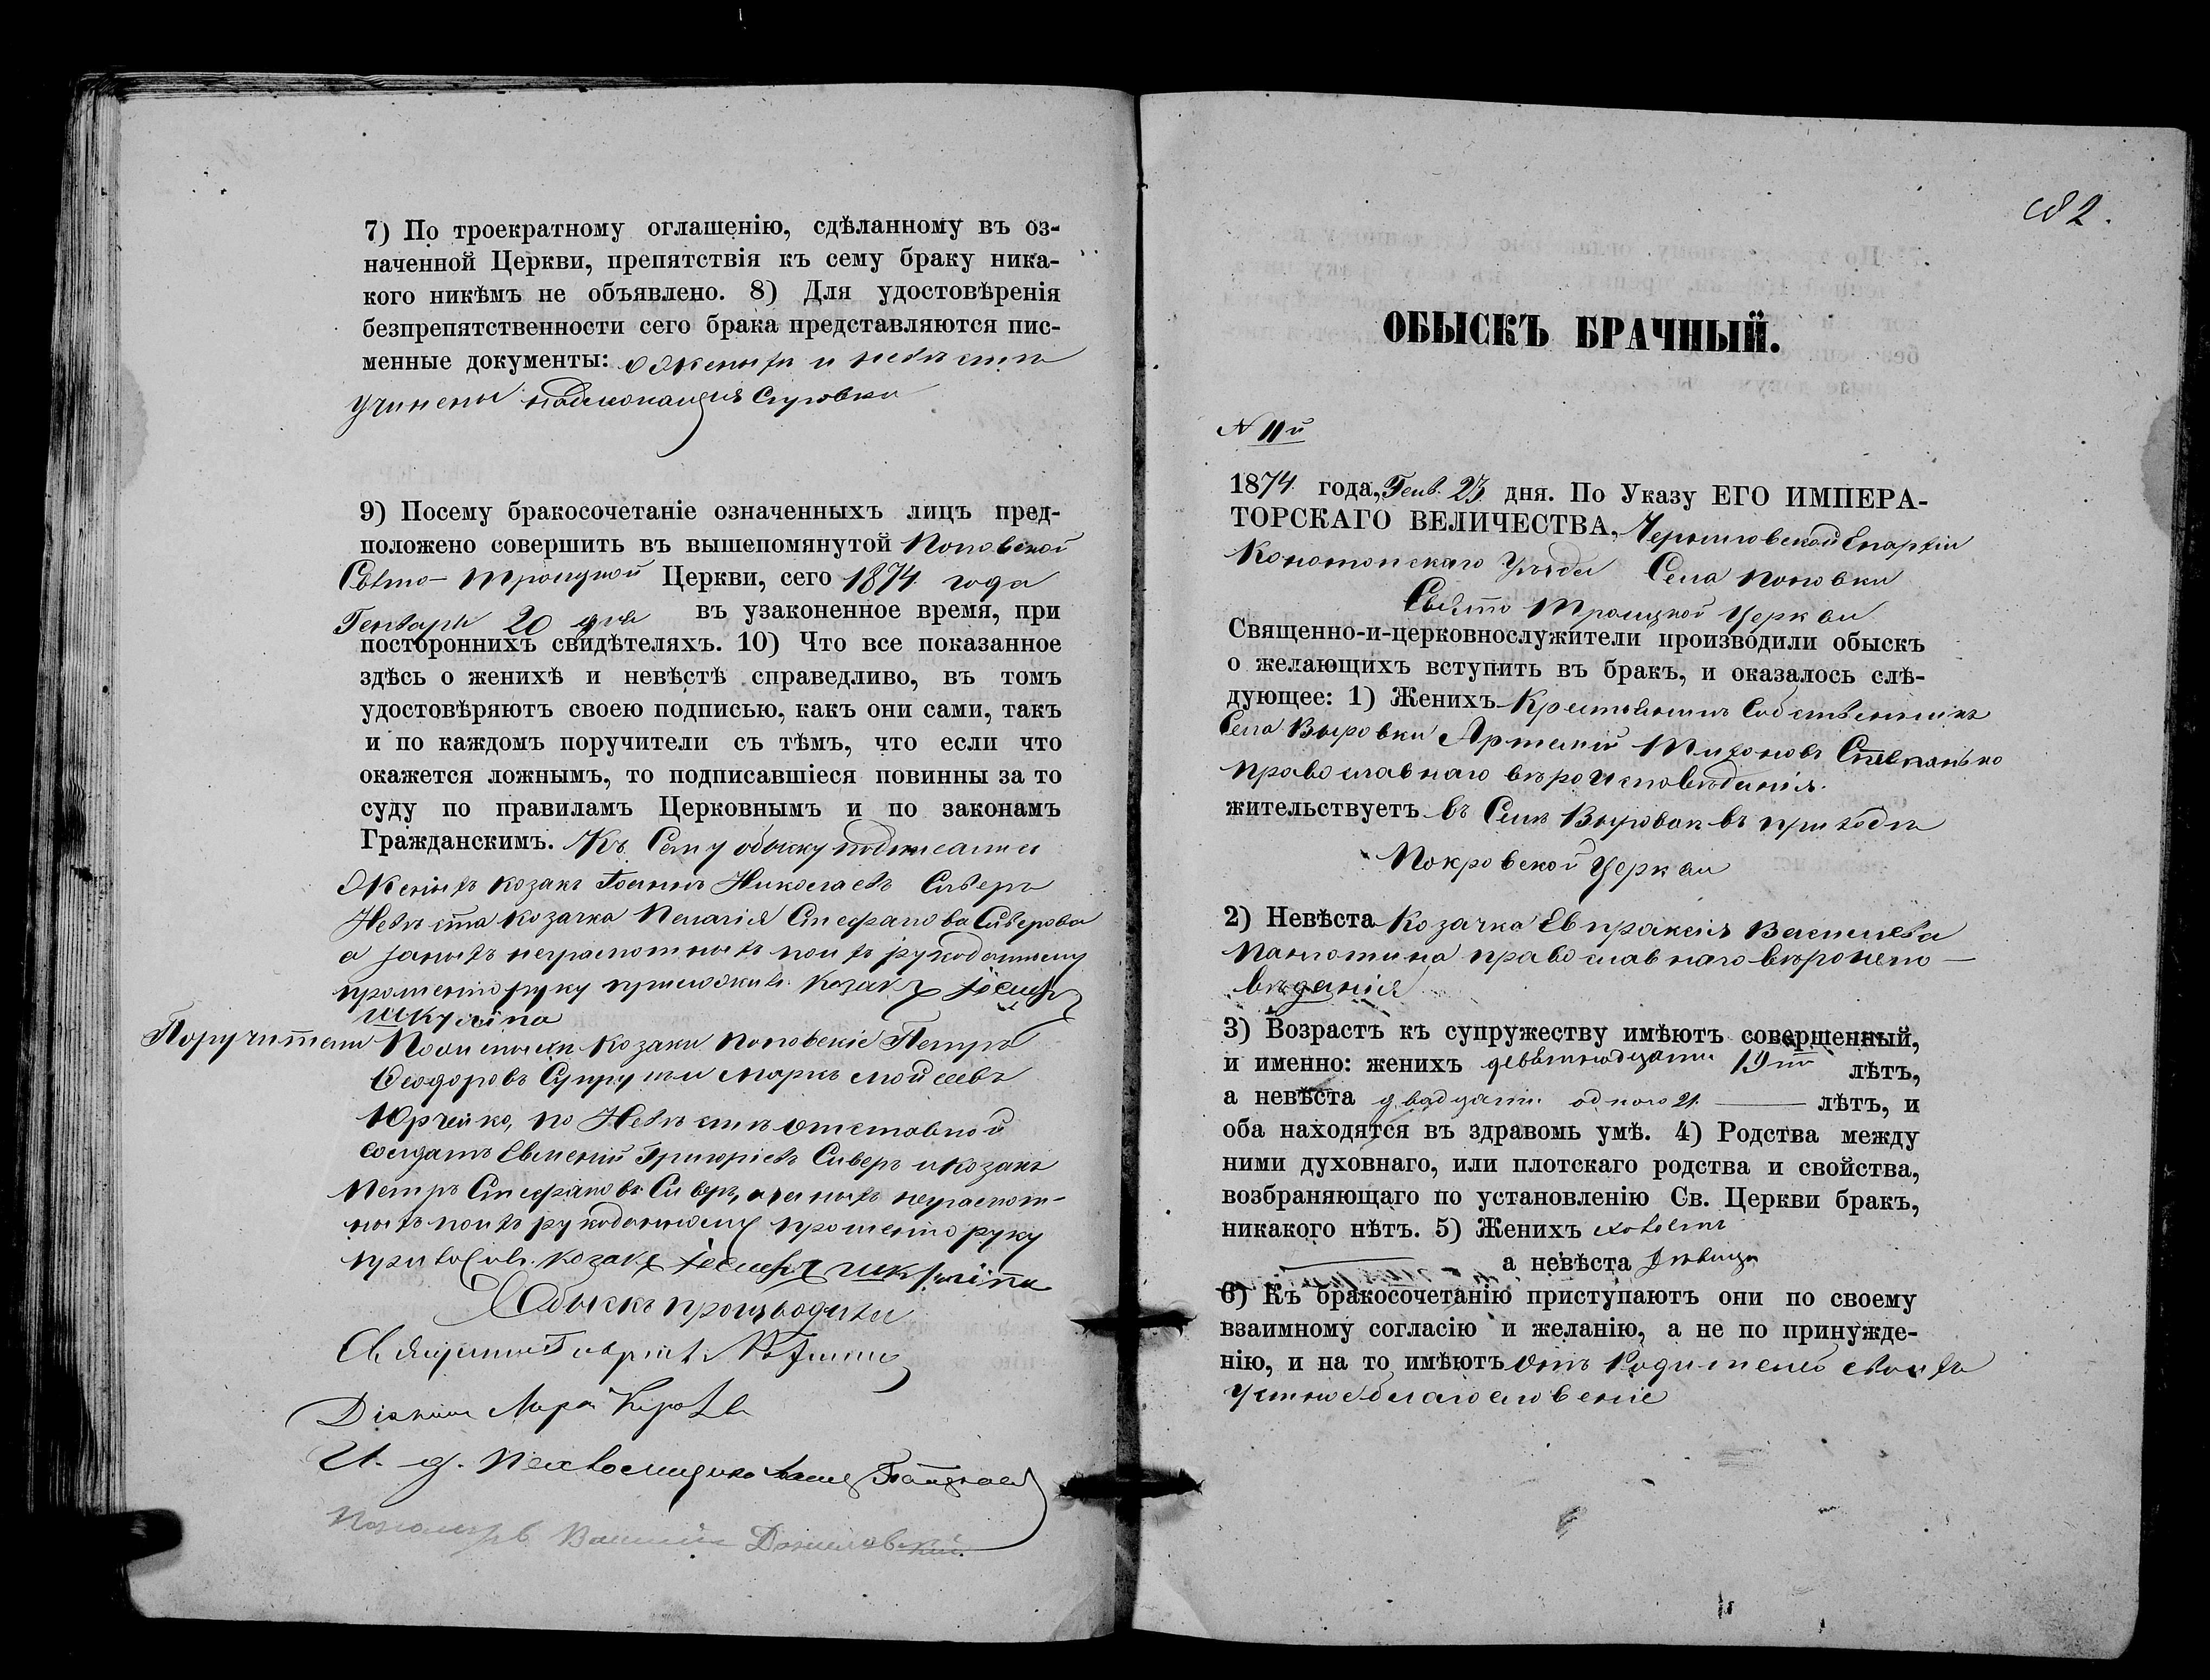 7) По троекратному оглашенію, сдѣланному въ оз-
наченной Церкви, препятствія къ сему браку ника-
кого никѣмъ не объявлено. 8) Для удостовѣренія
безпрепятственности сего брака представляются пис-
менные документы: о Женихѣ и невѣстѣ
учинены надлежащія Справки
9) Посему бракосочетаніе означенныхъ лицъ пред-
положено совершить въ вышепомянутой Поповской
Свято-Троицкой Церкви, сего 1874 года
Генваря 20 дня въ узаконенное время, при
постороннихъ свидѣтеляхъ. 10) Что все показанное
здѣсь о женихѣ и невѣстѣ справедливо, въ томъ
удостовѣряютъ своею подписью, какъ они сами, такъ
и по каждомъ поручители съ тѣмъ, что если что
окажется ложнымъ, то подписавшіеся повинны за то
суду по правиламъ Церковнымъ и по законамъ
Гражданскимъ. Къ Сему обыску подписались
Женихъ козакъ Іоаннъ Николаевъ Сиверъ
Невѣста козачка Пелагія Стефанова Сиверова
а за нихъ неграмотныхъ по ихъ рукоданному
прошенію руку приложилъ козакъ Іосифъ
Шкуліпа
Поручители По женихѣ козаки Поповскіе Петръ
Ѳеодоровъ Супрунъ и Маркъ Мойсеевъ
Юрченко, по Невѣстѣ отставной
солдатъ Евменій Григоріевъ Сиверъ и козакъ
Петръ Стефановъ Сиверъ, а за нихъ неграмот-
ныхъ по ихъ рукоданному прошенію руку
приложилъ козакъ Іосифъ Шкуліпа
Обыскъ производили
Священникъ Гавріилъ
Діаконъ
И. д. Псаломщика
Пономарь Василій Даниловскій
82.
ОБЫСКЪ БРАЧНЫЙ.
N 11й
1874 года, Генв. 23 дня. По Указу ЕГО ИМПЕРА-
ТОРСКАГО ВЕЛИЧЕСТВА, Черниговской Епархіи
Конотопскаго Уѣзда Села Поповки
Свято Троицкой Церкви
Священно-и-церковнослужители производили обыскъ
о желающихъ вступить въ бракъ, и оказалось слѣ-
дующее: 1) Женихъ Крестьянинъ Собственникъ
Села Выровки Артемій Тихоновъ Степанько
православнаго вѣроисповѣданія.
жительствуетъ въ Селѣ Выровкѣ въ приходѣ
Покровской Церкви
2) Невѣста Козачка Евпраксія Василіева
православнаго вѣроиспо-
вѣданія
3) Возрастъ къ супружеству имѣютъ совершенный,
и именно: женихъ девятнадцати 19ти лѣтъ,
а невѣста двадцати одного 21. лѣтъ, и
оба находятся въ здравомь умѣ. 4) Родства между
ними духовнаго, или плотскаго родства и свойства,
возбраняющаго по установленію Св. Церкви бракъ,
никакого нѣтъ. 5) Женихъ холостъ
а невѣста дѣвица
6) Къ бракосочетанію приступаютъ они по своему
взаимному согласію и желанію, а не по принужде-
нію, и на то имѣютъ отъ Родителей своихъ
устное благословеніе